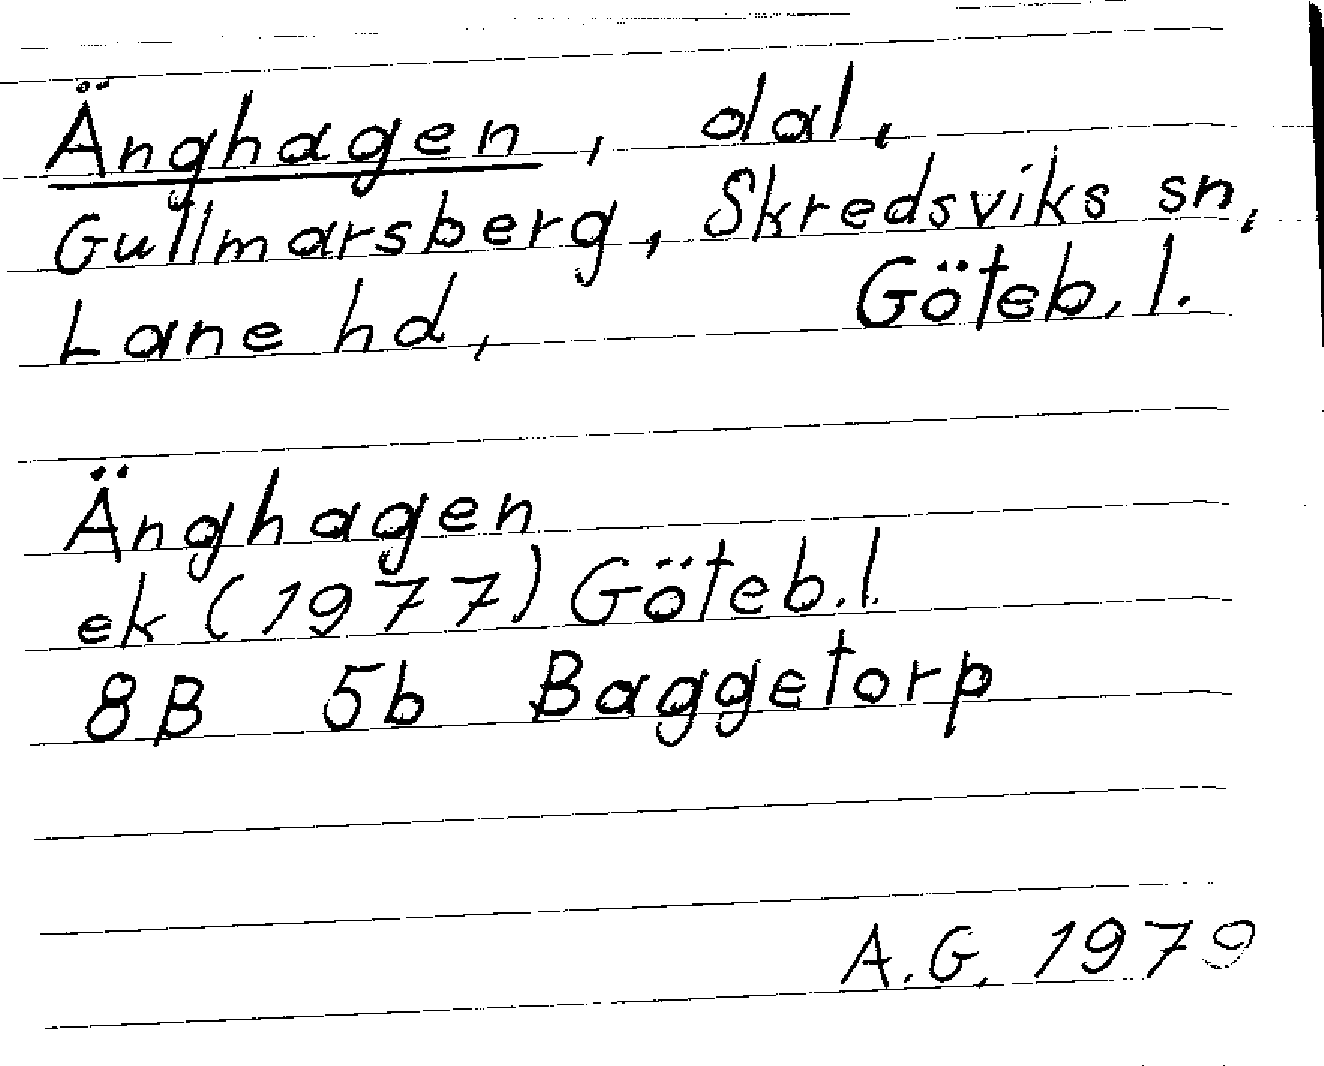 Änghagen, dal,
Gullmarsberg, Skredsviks sn,
Lane hd, Göteb. l.
Änghagen
ek (1977) Göteb. l.
8B 5b Baggetorp
A.G. 1979